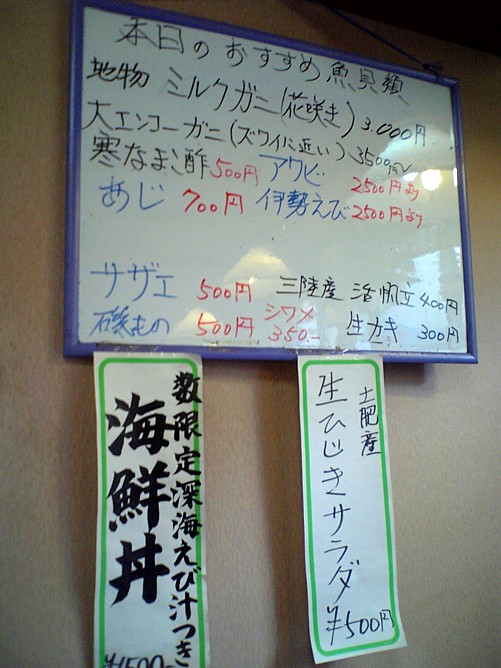 本日のおすすめ魚貝類
地物 ミルクガニ(花咲き) 3,000円
大エンコーガニ(ズワイに近い) 3500円
寒なまこ酢 500円 アワビ 2500円より
あじ 700円 伊勢えび 2500円より
サザエ 500円 三陸産 活帆立 400円
磯もの 500円 シワメ 350.- 生カキ 300円
数限定深海えび汁つき
海鮮丼
¥1500-
土肥産
生ひじきサラダ ¥500円